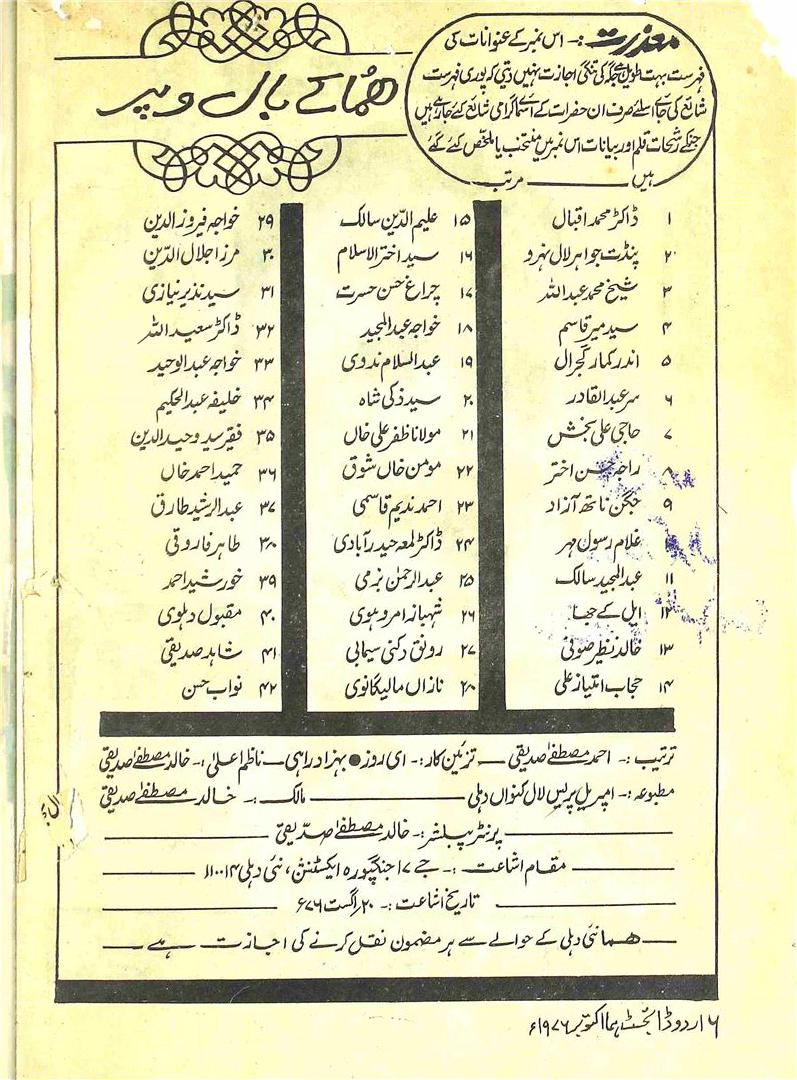 معذرت :- اس نمبر کے عنوانات کی
فہرست بہت طویل ہے جگہ کی تنگی اجازت نہیں دیتی کہ پوری فہرست
شائع کی جائے اسلئے صرف ان حضرات کے اسمائے گرامی شائع کئے جا رہے ہیں
جنکے رشحات قلم اور بیانات اس نمبر میں منتخب یا ملخص کئے گئے
ہیں ——— مرتب
ھُما کے بال و پر
۱ ڈاکٹر محمد اقبال
۲ پنڈت جواہر لال نہرو
۳ شیخ محمد عبداللہ
۴ سید میر قاسم
۵ اندر کمار گجرال
۶ سر عبدالقادر
۷ حاجی علی بخش
۸ راجہ حسن اختر
۹ جگن ناتھ آزاد
غلام رسول مہر
۱۱ عبدالمجید سالک
۱۲ ایل کے جھا
۱۳ خالد نظیر صوفی
۱۴ حجاب امتیاز علی
۱۵ علیم الدّین سالک
۱۶ سید اختر الاسلام
۱۷ چراغ حسن حسرت
۱۸ خواجہ عبدالمجید
۱۹ عبدالسلام ندوی
۲۰ سید ذکی شاہ
۲۱ مولانا ظفر علی خاں
۲۲ مومن خاں شوق
۲۳ احمد ندیم قاسمی
۲۴ ڈاکٹر لمعہ حیدر آبادی
۲۵ عبدالرحمٰن بزمی
۲۶ شہبانہ امروہوی
۲۷ رونق دکنی سیمابی
۲۸ نازاں مالیگانوی
۲۹ خواجہ فیروز الدین
۳۰ مرزا جلال الدّین
۳۱ سید نذیر نیازی
۳۲ ڈاکٹر سعید اللہ
۳۳ خواجہ عبدالوحید
۳۴ خلیفہ عبدالحکیم
۳۵ فقیر سید وحید الدین
۳۶ حمید احمد خاں
۳۷ عبدالرشید طارق
۳۸ طاہر فاروقی
۳۹ خورشید احمد
۴۰ مقبول دہلوی
۴۱ شاہد صدیقی
۴۲ نواب حسن
ترتیب :- احمد مصطفےٰ صدیقی — تزئین کار :- ای روز ● بہزاد راہی — ناظم اعلیٰ :- خالد مصطفےٰ صدیقی
مطبوعہ :- امپریل پریس لال کنواں دہلی ——— مالک :- خالد مصطفےٰ صدیقی
پرنٹر پبلشر :- خالد مصطفےٰ صدّیقی
مقام اشاعت :- جے ۱۷ جنگپورہ ایکسٹنشن، نئی دہلی ۱۱۰۰۱۴
تاریخ اشاعت :- ۲۰ اگست ۷۶ء
ھما نئی دہلی کے حوالے سے ہر مضمون نقل کرنے کی اجازت ہے
۶ اردو ڈائجسٹ ہما اکتوبر ۱۹۷۶ء